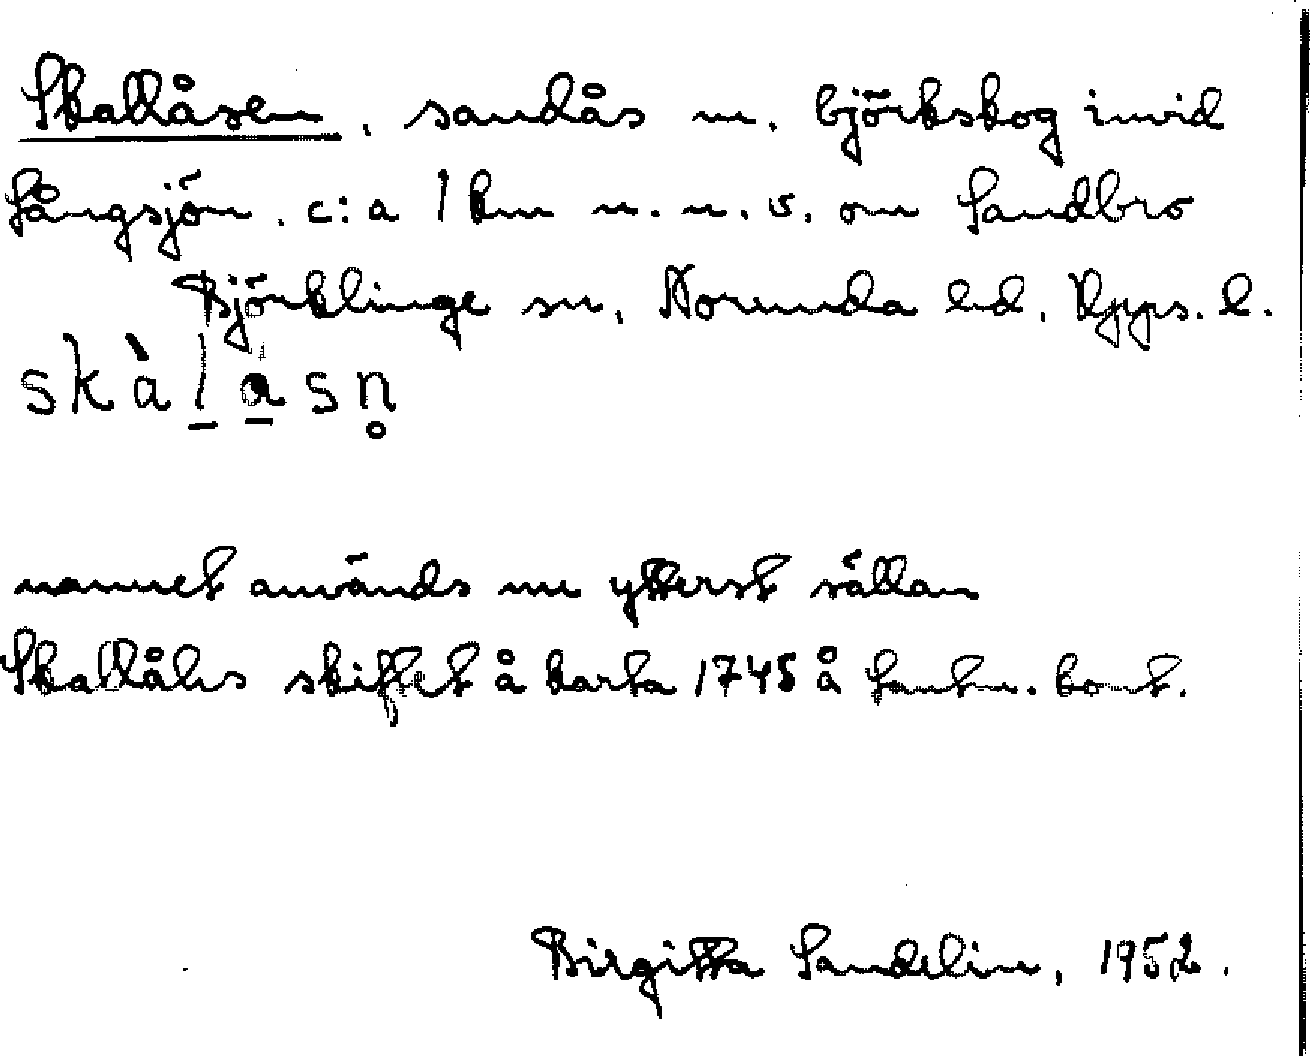 Skallåsen, sandås m. björkskog invid
Långsjön. c:a 1 km n.n.v. om Sandbro
Björklinge sn, Norunda hd, Upps. l.
skàl̲a̲sn̥
namnet används nu ytterst sällan
Skallåhs skiftet å karta 1745 å Lantm. kont.
Birgitta Sandelin, 1952.